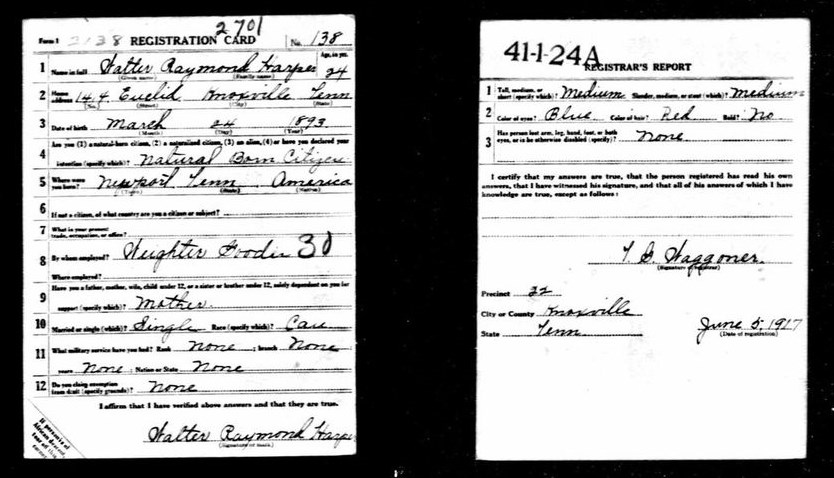 Form 1 2138 REGISTRATION CARD 2701 No. 138
1 Name in full Walter Raymond Harper Age, in yrs. 24
(Given name) (Family name)
2 Home address 144 Euclid Knoxville Tenn
(No.) (Street) (City) (State)
3 Date of birth March 24 1893
(Month) (Day) (Year)
4 Are you (1) a natural-born citizen, (2) a naturalized citizen, (3) an alien, (4) or have you declared your
intention (specify which)? Natural Born Citizen
5 Where were you born? Newport Tenn America
(Town) (State) (Nation)
6 If not a citizen, of what country are you a citizen or subject?
7 What is your present trade, occupation, or office?
8 By whom employed? 30
Where employed?
9 Have you a father, mother, wife, child under 12, or a sister or brother under 12, solely dependent on you for
support (specify which)? Mother.
10 Married or single (which)? Single Race (specify which)? Cau
11 What military service have you had? Rank None ; branch None
years None ; Nation or State None
12 Do you claim exemption from draft (specify grounds)? None
I affirm that I have verified above answers and that they are true.
Walter Raymond Harper
(Signature or mark)
If person is of African descent, tear off this corner
41-1-24 A
REGISTRAR'S REPORT
1 Tall, medium, or short (specify which)? Medium Slender, medium, or stout (which)? Medium
2 Color of eyes? Blue Color of hair? Red Bald? No
3 Has person lost arm, leg, hand, foot, or both eyes, or is he otherwise disabled (specify)? None
I certify that my answers are true, that the person registered has read his own
answers, that I have witnessed his signature, and that all of his answers of which I have
knowledge are true, except as follows:
Waggoner.
(Signature of registrar)
Precinct 22
City or County Knoxville
State Tenn
June 5, 1917
(Date of registration)